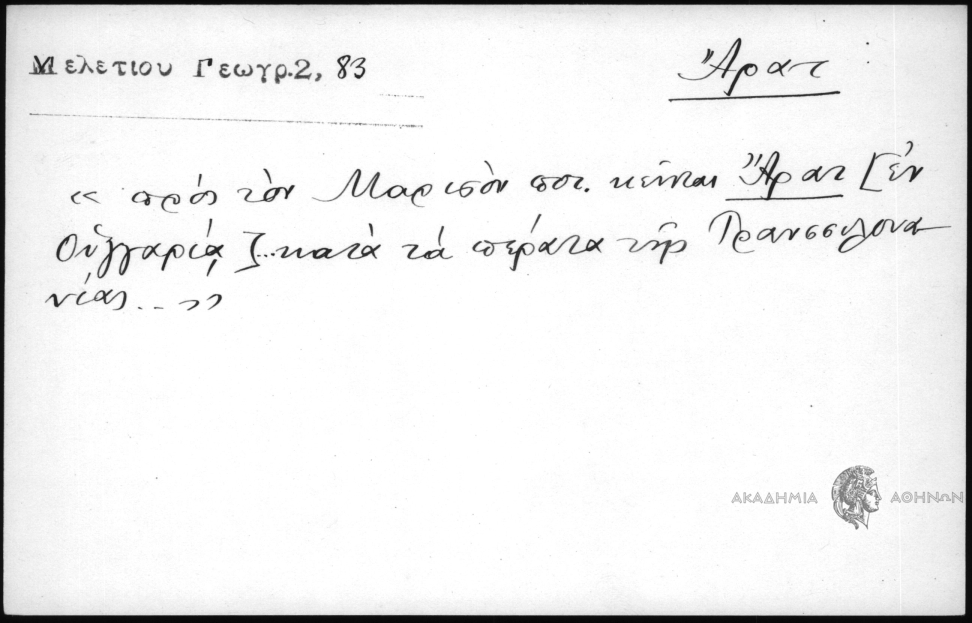 Μελετιου Γεωγρ.2, 83
Ἄρατ
« πρὸς τὸν Μαρισὸν ποτ. κεῖται Ἄρατ [ἐν
Οὑγγαρίᾳ]... κατὰ τὰ πέρατα τῆς Τρανσσιλουα-
νίας... »
ΑΚΑΔΗΜΙΑ ΑΘΗΝΩΝ